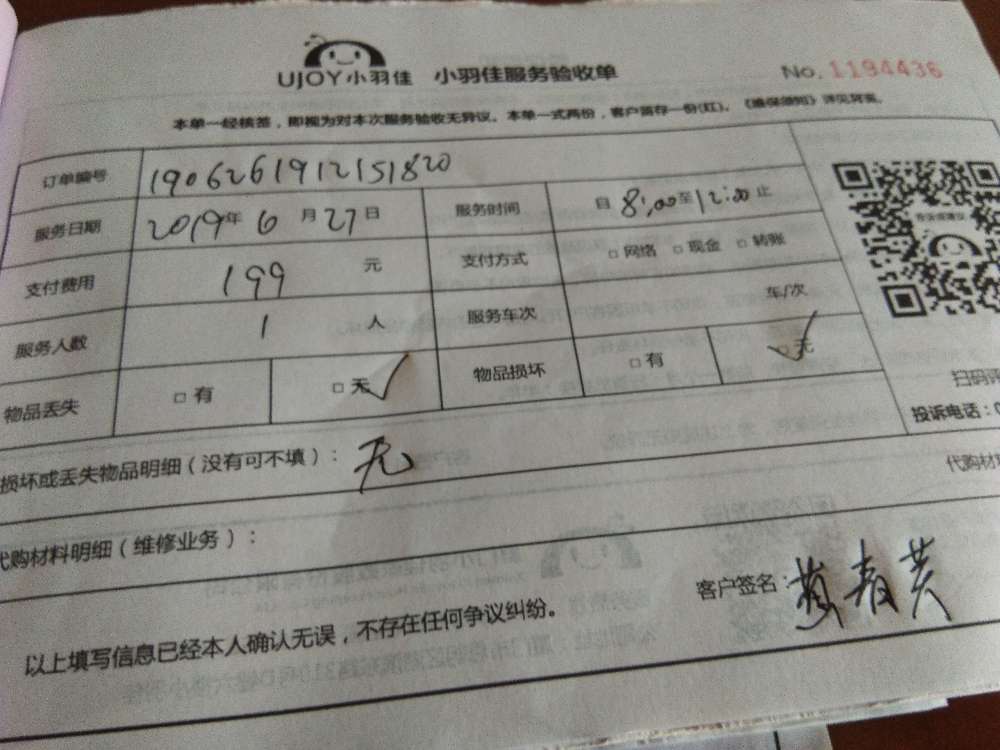 UJOY小羽佳 小羽佳服务验收单 No.1194436
本单一经核签，即视为对本次服务验收无异议。本单一式两份，客户留存一份(红)。《维保须知》详见背面。
订单编号 1906261912151820
服务日期 2019年6月27日 服务时间 自8:00至12:00止
支付费用 199元 支付方式 □网络 □现金 □转账
服务人数 1人 服务车次 车/次
物品丢失 □有 □无✓ 物品损坏 □有 □无✓
扫码评
投诉电话：0
损坏或丢失物品明细（没有可不填）： 无
代购材料
代购材料明细（维修业务）：
客户签名：
以上填写信息已经本人确认无误，不存在任何争议纠纷。